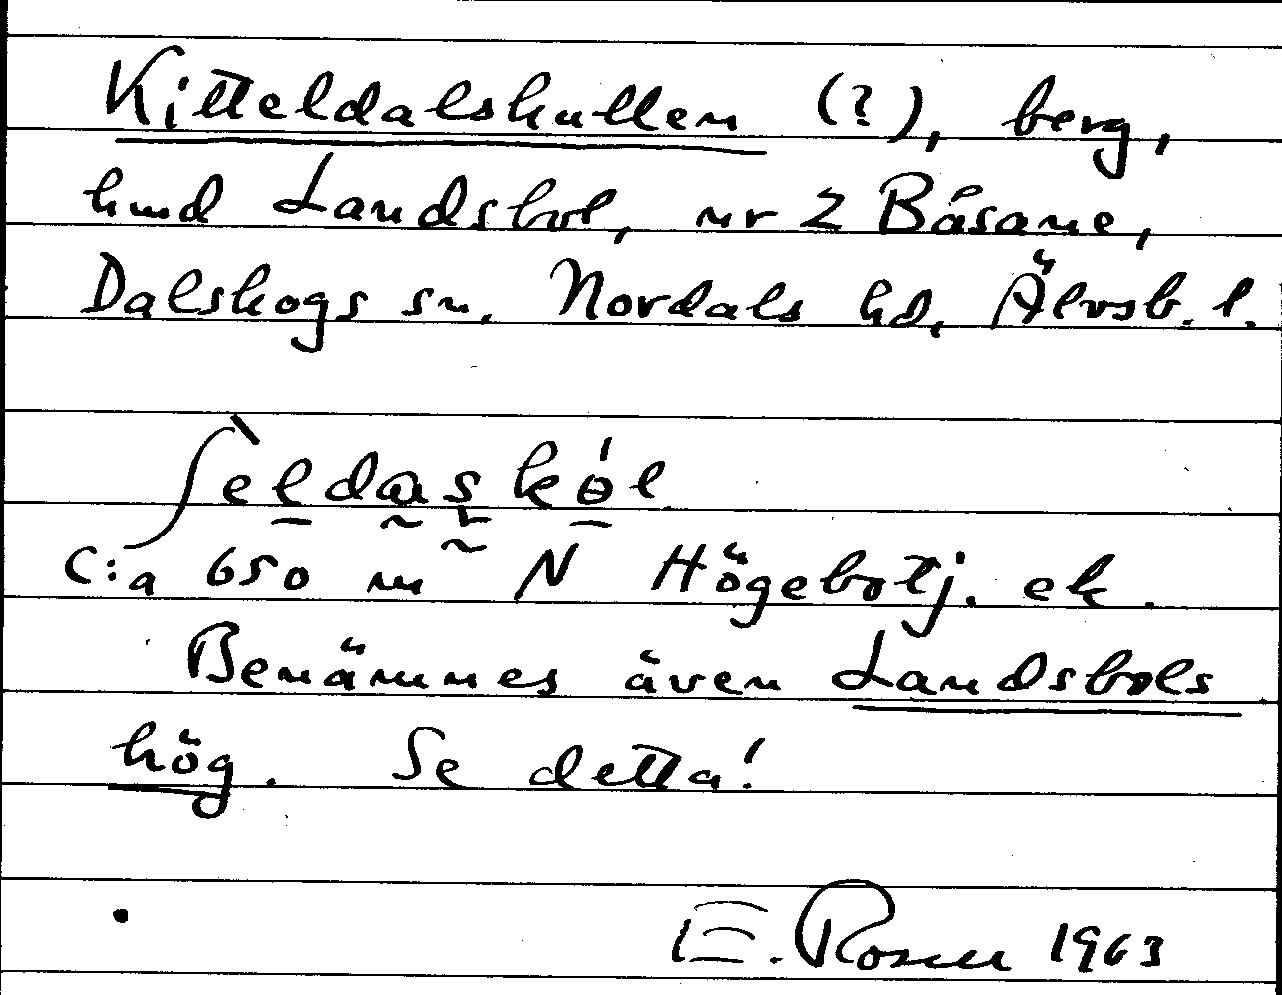 Kitteldalskullen (?), berg,
hmd Landsbol, nr 2 Båsane,
Dalskogs sn. Nordals hd, Älvsb. l.
ʃèldaskól
C:a 650 m N Högebotj. ek.
Benämnes även Landsbols
hög. Se detta!
E. Rosell 1963